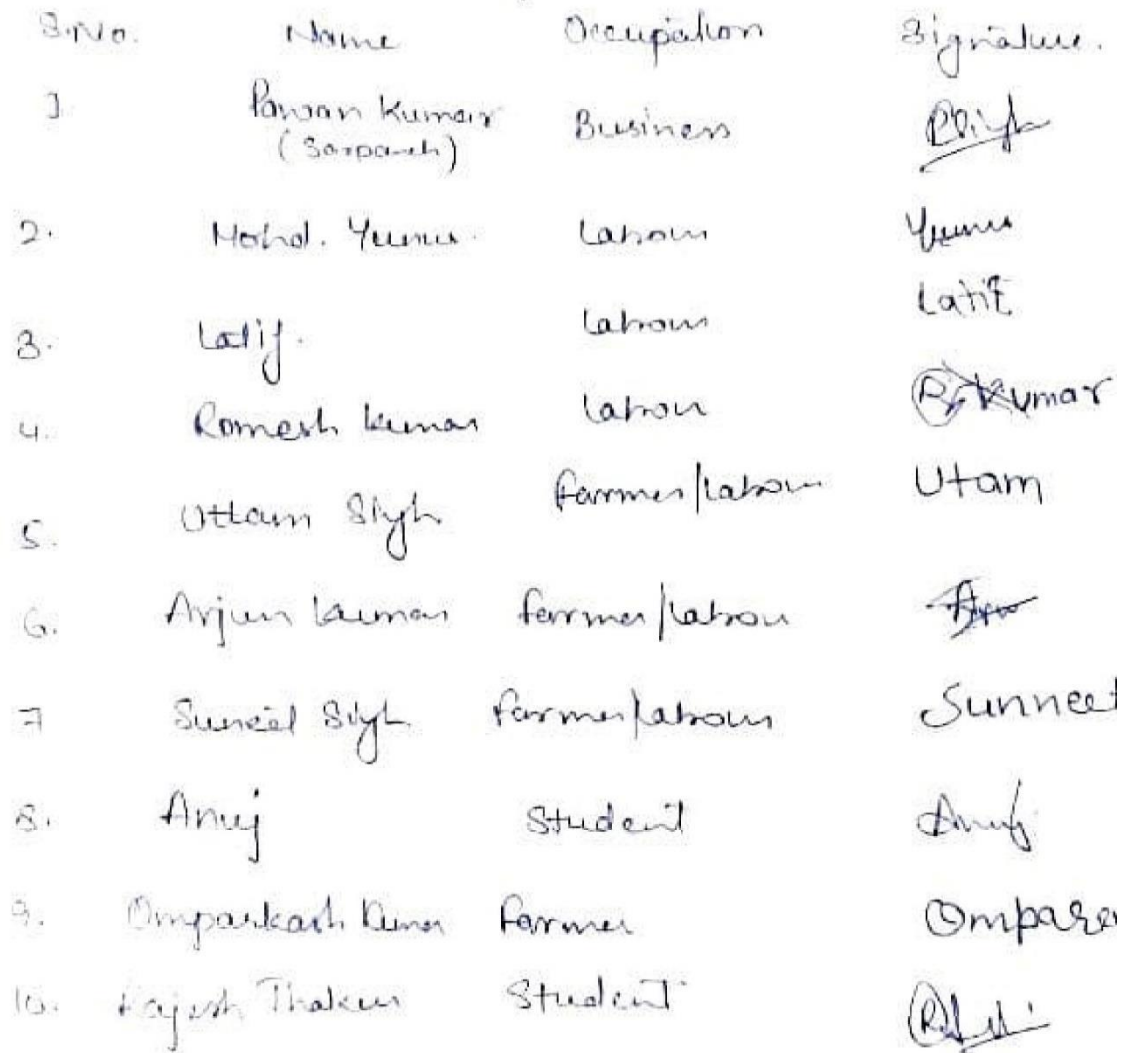 S.No. Name Occupation Signature.
1. Pawan Kumar Business
(Sarpanch)
2. Mohd. Yunus. Labour Yunus
3. Latif. Labour Latif
4. Romesh Kumar Labour R. Kumar
5. Uttam Singh Farmer/Labour Utam
6. Arjun Kumar Farmer/Labour
7 Suneet Singh Farmer/Labour Sunneet
8. Anuj Student Anuj
9. Omparkash Kumar Farmer Ompare
10. Rajesh Thakur Student